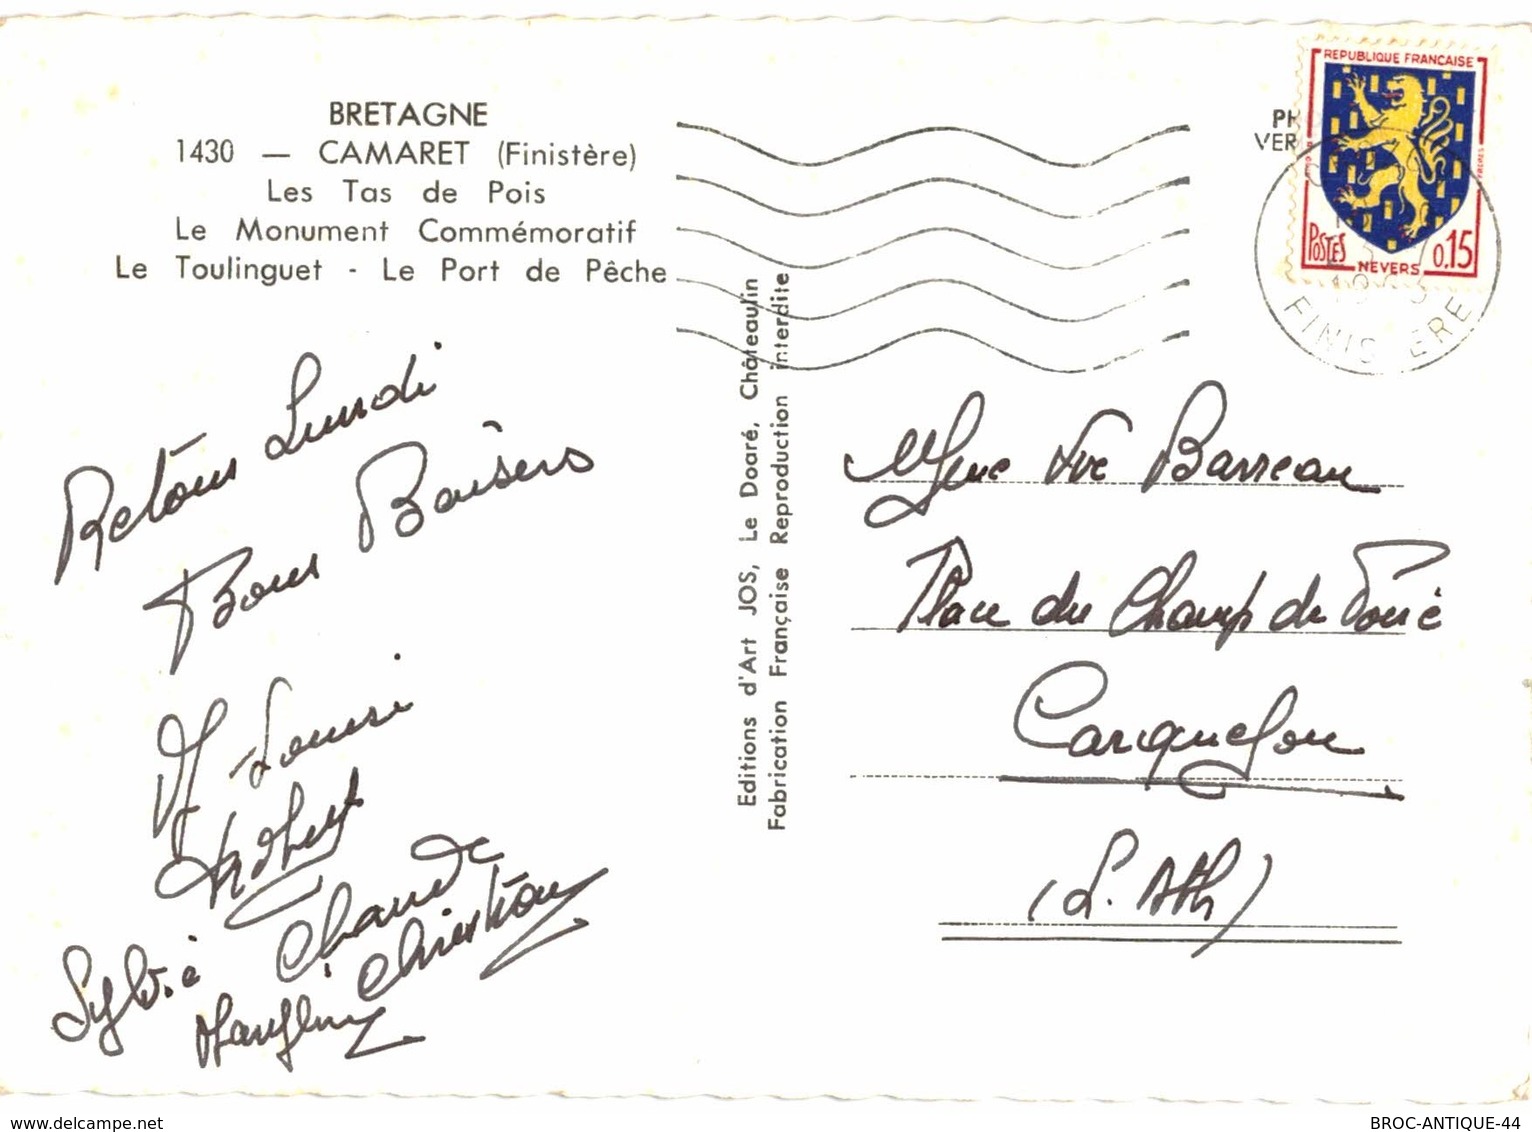 BRETAGNE
1430 — CAMARET (Finistère)
Les Tas de Pois
Le Monument Commémoratif
Le Toulinguet - Le Port de Pêche
REPUBLIQUE FRANÇAISE
POSTES
NEVERS
0,15
PH
VER
FINIS ERE
Editions d'Art JOS, Le Doaré, Châteaulin
Fabrication Française Reproduction interdite
Retour Lundi
Bons Baisers
M-Louise
Sylvie
Claude
Christian
Mme Vve Barreau
Place du Champ de Foire
Carquefou
(L. Atl)
www.delcampe.net
BROC-ANTIQUE-44